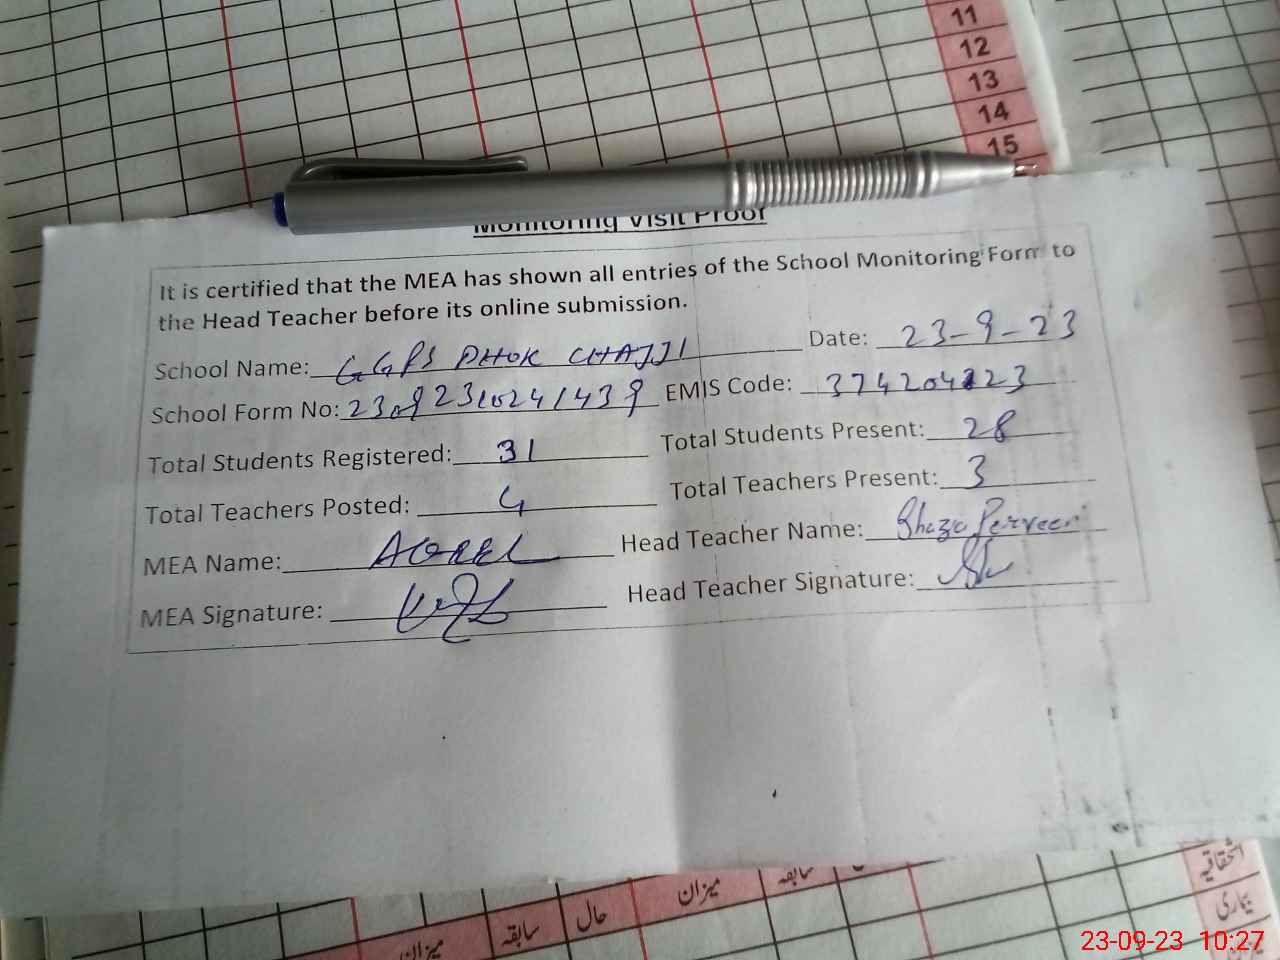 11
12
13
14
15
Monitoring Visit Proof
It is certified that the MEA has shown all entries of the School Monitoring Form to
the Head Teacher before its online submission.
School Name: GGPS DHOK CHAJJI Date: 23-9-23
School Form No: 23092310241439 EMIS Code: 374204223
Total Students Registered: 31 Total Students Present: 28
Total Teachers Posted: 4 Total Teachers Present: 3
MEA Name: AQEEL Head Teacher Name: Perveen
MEA Signature: Head Teacher Signature:
میزان سابقہ حال میزان سابقہ
بیماری
23-09-23 10:27